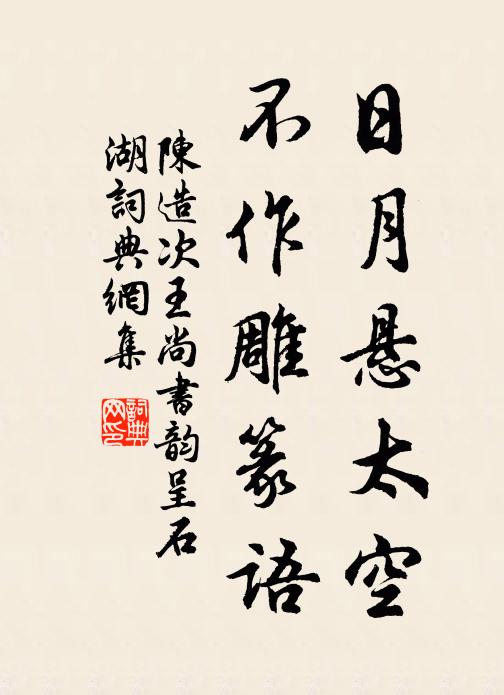 日月悬太空
不作雕篆語
陳造次王尚書韵呈石
湖詞典網集
詞典
网印